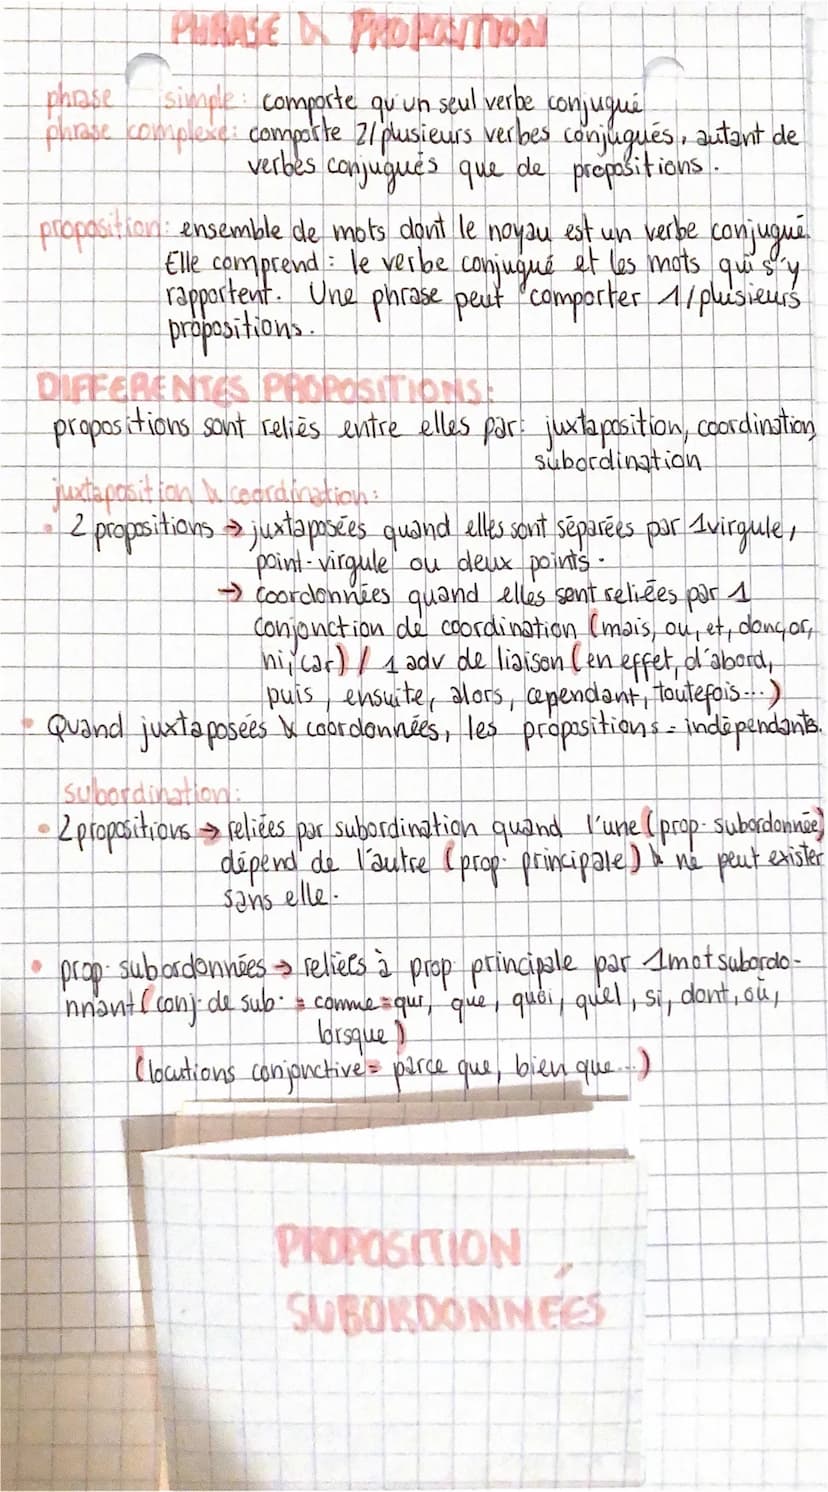 PHRASE & PROPOSITION
phrase simple: comporte qu'un seul verbe conjugué
phrase complexe: comporte 2/plusieurs verbes conjugués, autant de
verbes conjugués que de propositions.
proposition: ensemble de mots dont le noyau est un verbe conjugué.
Elle comprend : le verbe conjugué et les mots qui s'y
rapportent. Une phrase peut comporter 1/plusieurs
propositions.
DIFFERENTES PROPOSITIONS:
propositions sont reliés entre elles par: juxtaposition, coordination,
subordination
juxtaposition & coordination:
• 2 propositions → juxtaposées quand elles sont séparées par 1 virgule,
point-virgule ou deux points.
→ coordonnées quand elles sont reliées par 1
conjonction de coordination (mais, ou, et, donc, or,
ni, car) / 1 adv de liaison (en effet, d'abord,
puis, ensuite, alors, cependant, toutefois...)
• Quand juxtaposées & coordonnées, les propositions = indépendants.
subordination:
• 2 propositions → reliées par subordination quand l'une (prop. subordonnée)
dépend de l'autre (prop. principale) & ne peut exister
sans elle.
• prop. subordonnées → reliées à prop principale par 1 mot subordo-
nnant (conj. de sub. = comme = qui, que, quoi, quel, si, dont, où,
lorsque)
(locutions conjonctive = parce que, bien que...)
PROPOSITION
SUBORDONNÉES